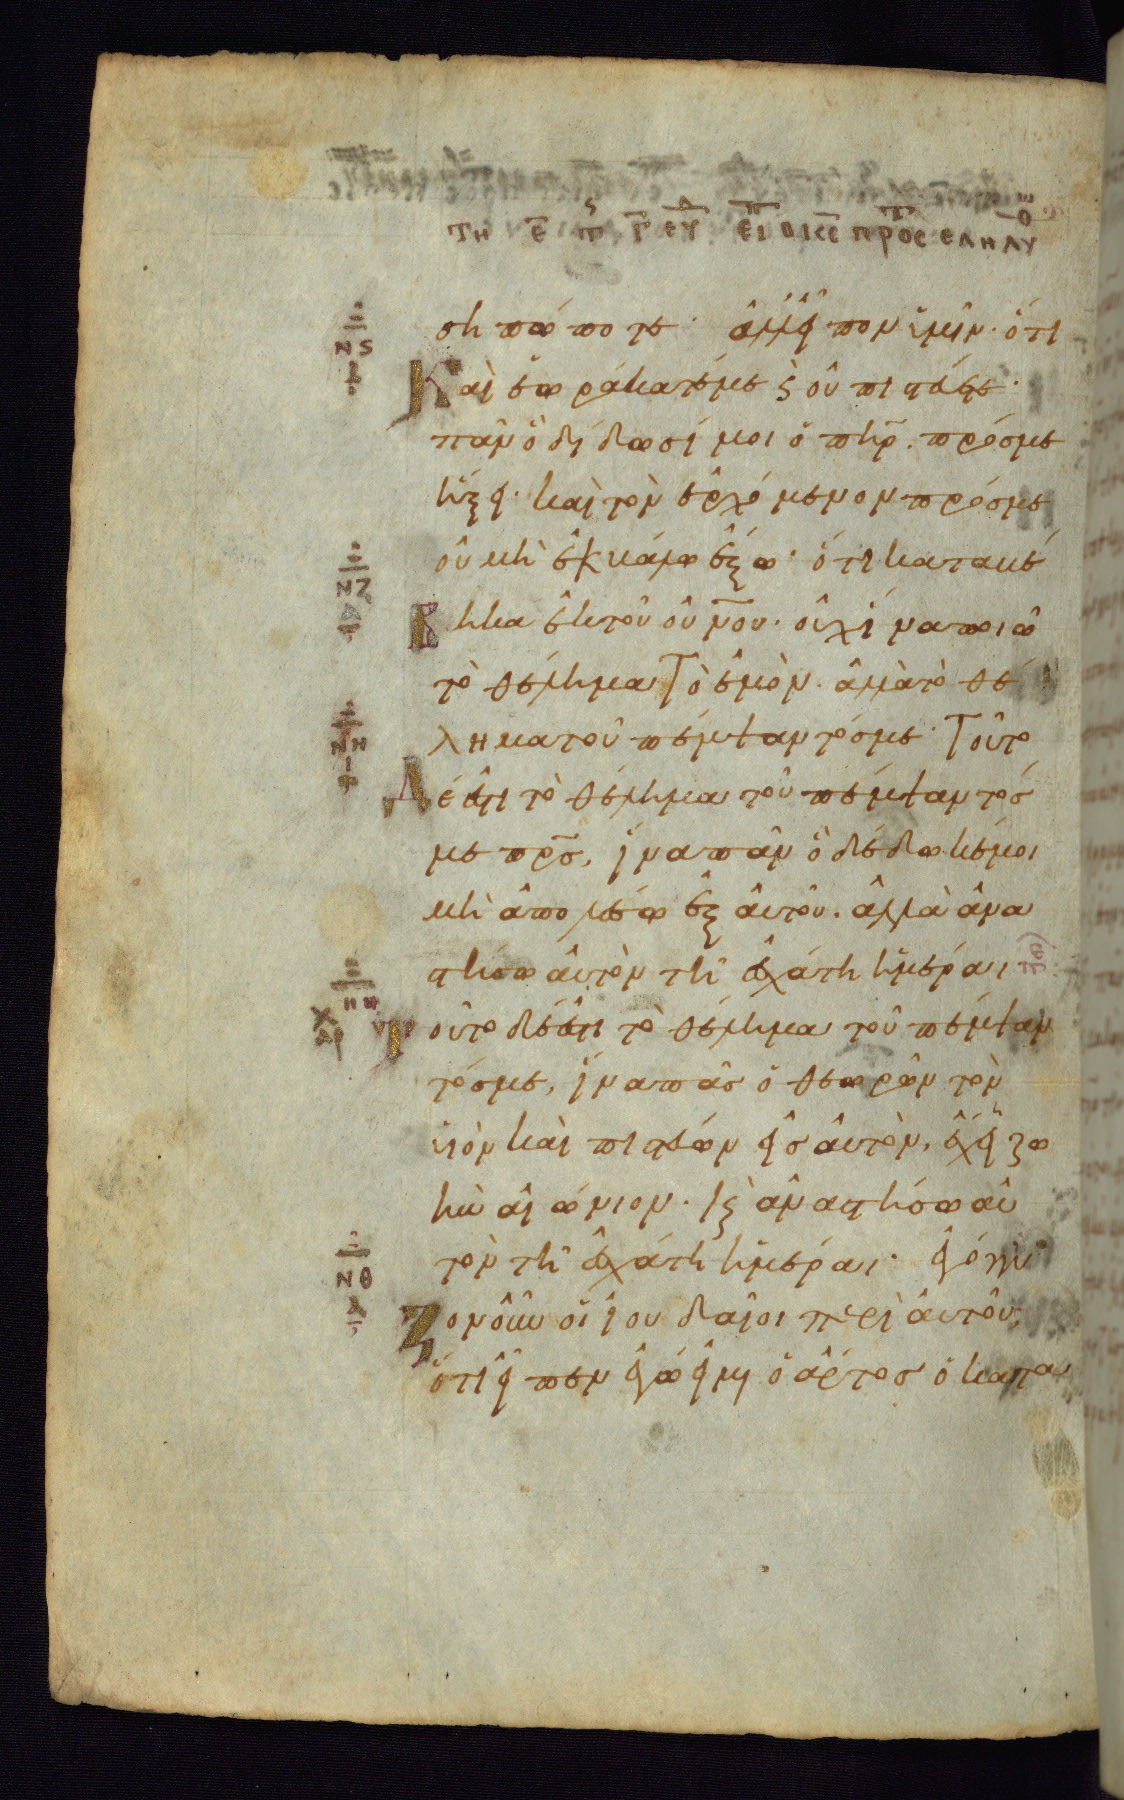 τη ε̅ τ̅ γ̅ ευ ει ο ι̅ς̅ προς εληλυ θο
ση πώποτε· ἀλλ' εἶπον ὑμῖν· ὅτι
Καὶ ἑωράκατέ με ϗ οὐ πιστεύετε·
πᾶν ὃ δίδωσί μοι ὁ π̅η̅ρ̅. πρός με
ἥξει· καὶ τὸν ἐρχόμενον πρός με
οὐ μὴ ἐκβάλω ἔξω· ὅτι καταβέ
Βηκα ἐκ τοῦ οὐ̅ν̅ου· οὐχ ἵνα ποιῶ
τὸ θέλημα τὸ ἐμὸν· ἀλλὰ τὸ θέ
λημα τοῦ πέμψαντός με· Τοῦτο
Δέ ἐστι τὸ θέλημα τοῦ πέμψαντός
με π̅ρ̅ς̅, ἵνα πᾶν ὃ δέδωκέ μοι
μὴ ἀπολέσω ἐξ αὐτοῦ. ἀλλὰ ἀνα
στήσω αὐτὸν τῆ ἐσχάτη ἡμέραι
Τοῦτο δέ ἐστι τὸ θέλημα τοῦ πέμψαν
τός με, ἵνα πᾶς ὁ θεωρῶν τὸν
υἱὸν καὶ πιστεύων εἰς αὐτὸν, ἔχει ζω
ὴν αἰώνιον· ϗ ἀναστήσω αὐ
τὸν τῆ ἐσχάτη ἡμέραι· ἐγόγγυ
Ζον οὖν οἱ ἰουδαῖοι περὶ αὐτοῦ,
ὅτι εἶπεν ἐγώ εἰμι ὁ ἄρτος ὁ κατα
ΝϚ
ΝΖ
ΝΗ
ΝΗ
ΝΘ